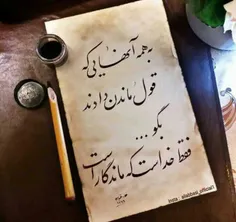 به همه آنهایی که
قول ماندن دادند
بگو...
فقط خداست که ماندگار است